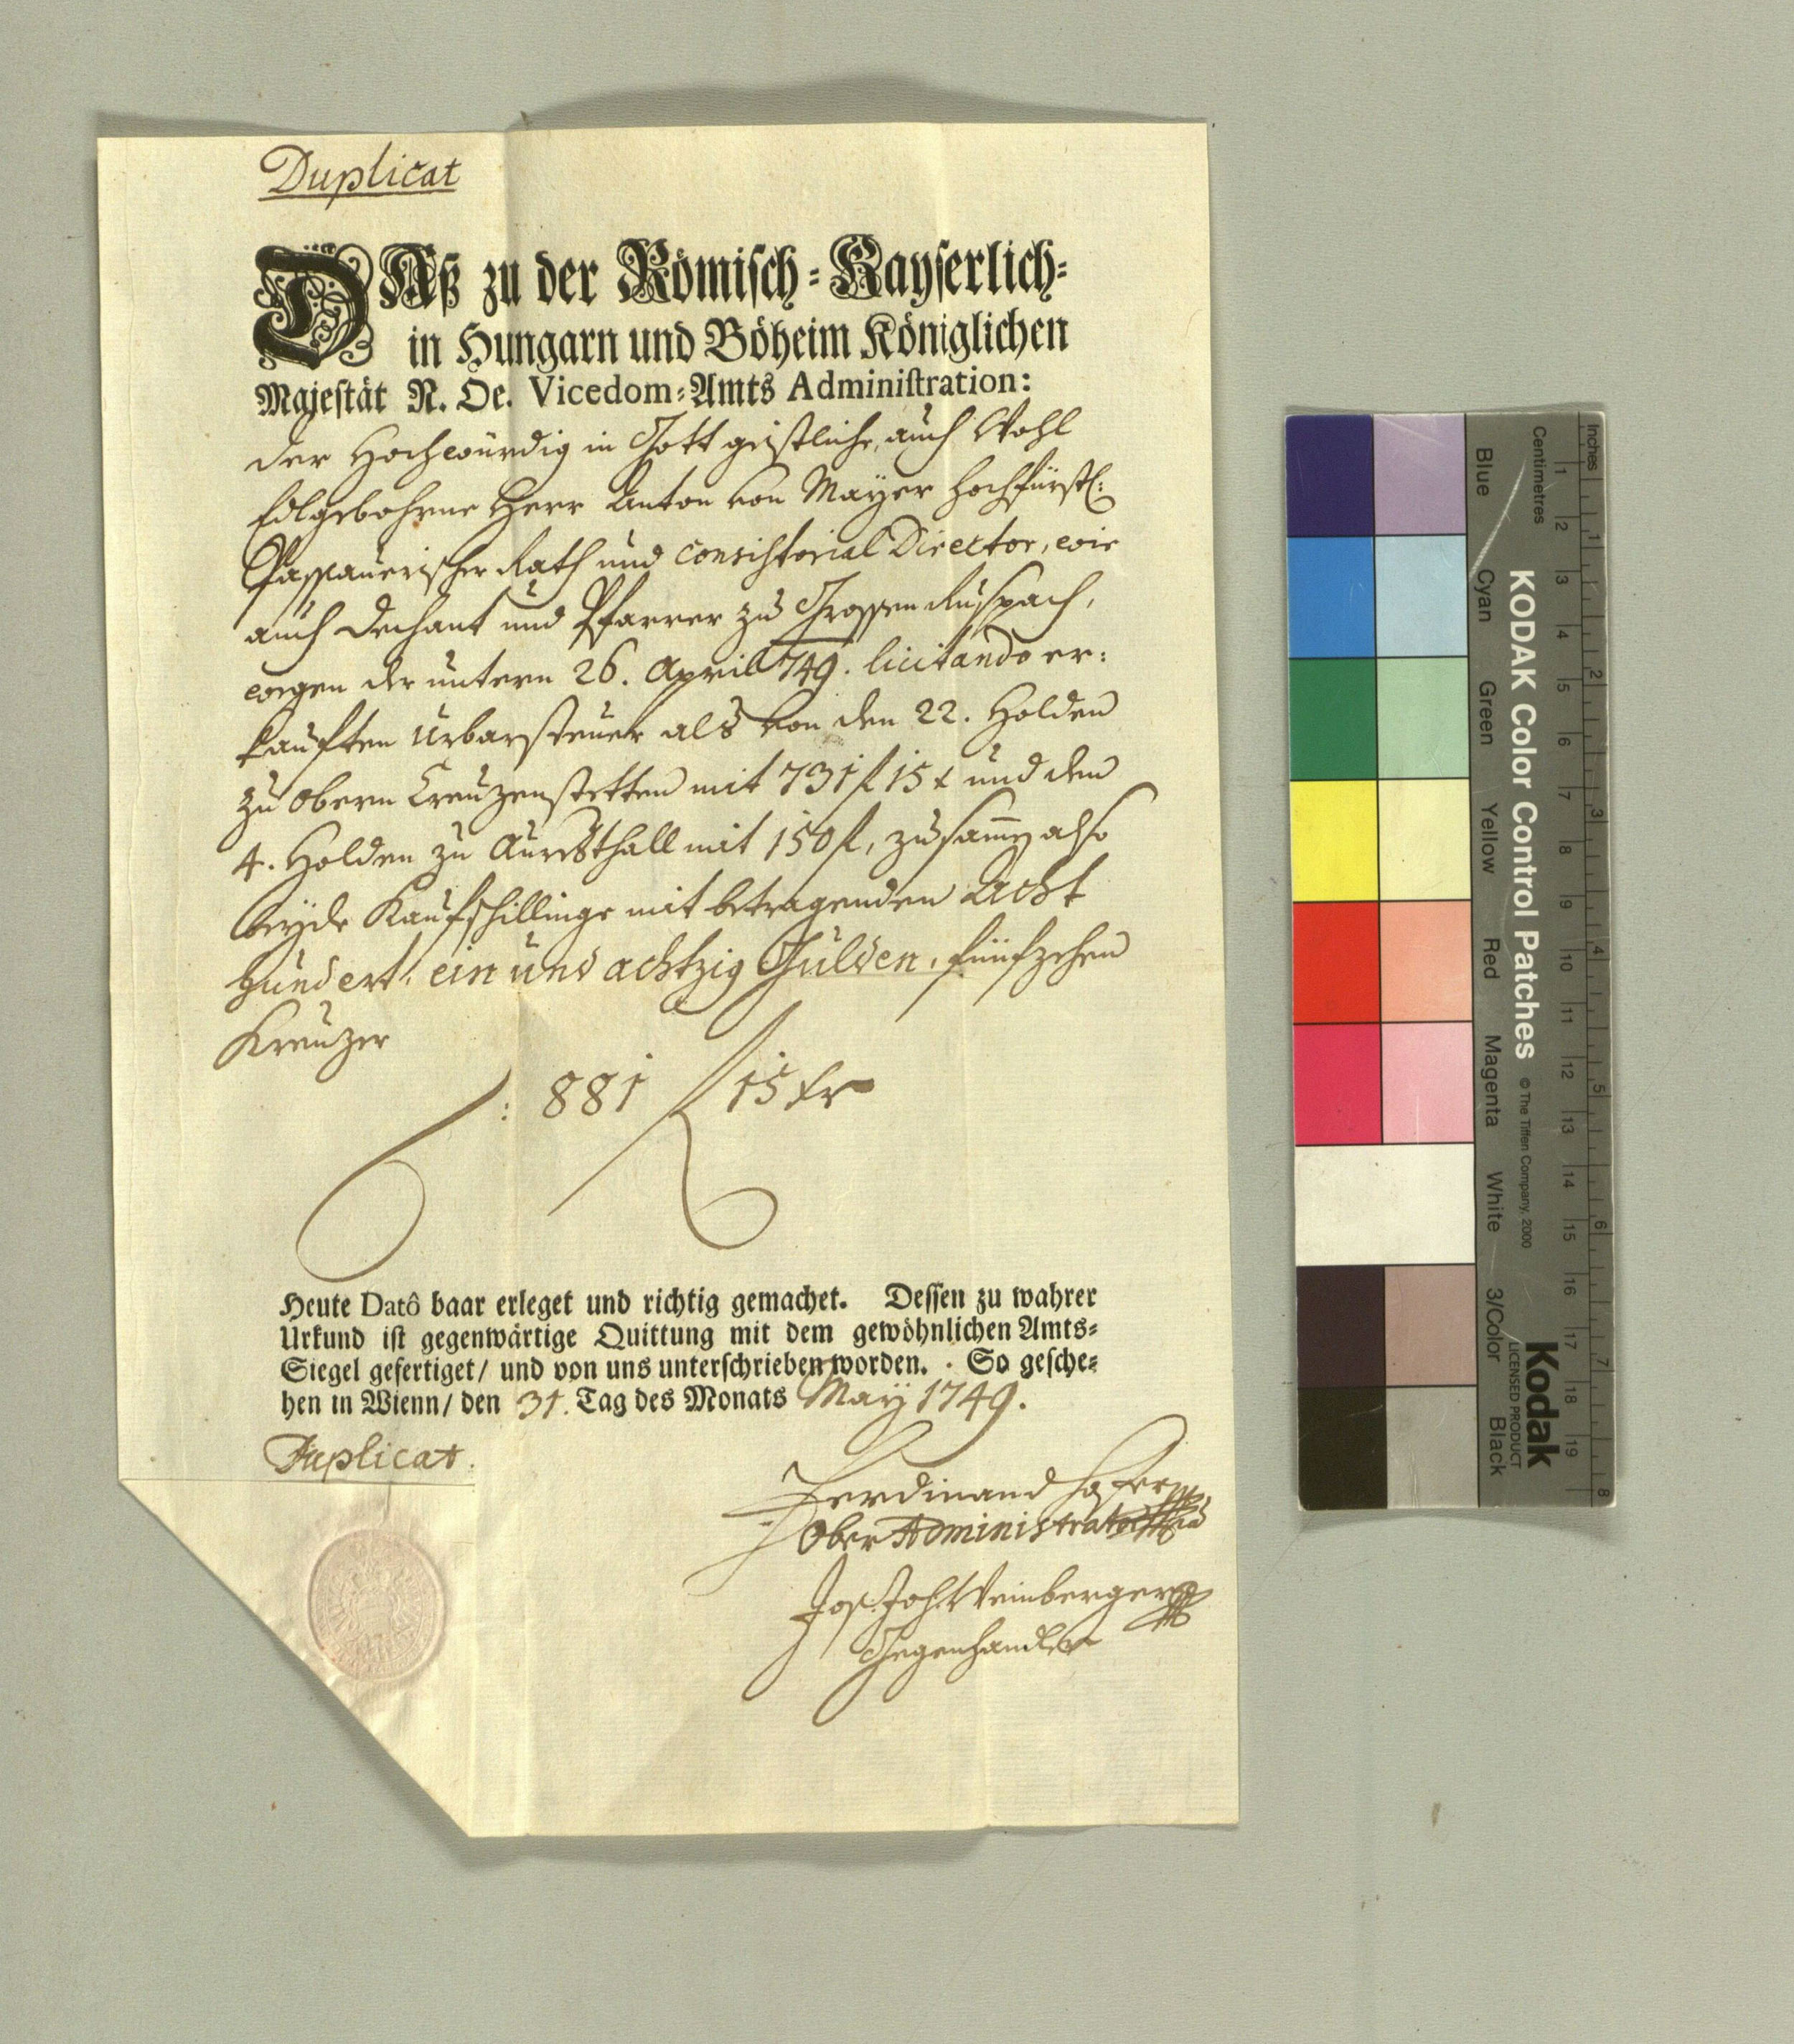 Duplicat
DAß zu der Römisch-Kayserlich-
in Hungarn und Böheim Königlichen
Majestät N. Oe. Vicedom-Amts Administration:
der Hochwürdig in Gott geistliche, auch Wohl
Edlgebohrne Herr Anton von Mayer Hochfürstl:
Passauerischer Rath und Consistorial Director, wie
auch Dechant und Pfarrer zu Grossen Rußpach,
wegen der untern 26. April 749. licitando er:
kauften Urbarsteuer als von den 22. Holden
zu Obern Creuzenstetten mit 731 f 15 x und den
4. Holden zu Aurßthall mit 150 f, zusamen also
beyde Kaufschillinge mit betragenden Acht
hundert, ein und achtzig Gulden, fünfzehen
Kreuzer
: 881 f 15 kr
Heute Datô baar erleget und richtig gemachet. Dessen zu wahrer
Urkund ist gegenwärtige Quittung mit dem gewöhnlichen Amts-
Siegel gefertiget/ und von uns unterschrieben worden. So gesche-
hen in Wienn/ den 31. Tag des Monats May 1749.
Duplicat.
Ferdinand
Ober Administrator
Jos. Joh. Weinberger
Gegenhandler
Inches
Centimetres
1 2 3 4 5 6 7 8
1 2 3 4 5 6 7 8 9 10 11 12 13 14 15 16 17 18 19
KODAK Color Control Patches
© The Tiffen Company, 2000
Kodak
LICENSED PRODUCT
Blue
Cyan
Green
Yellow
Red
Magenta
White
3/Color
Black